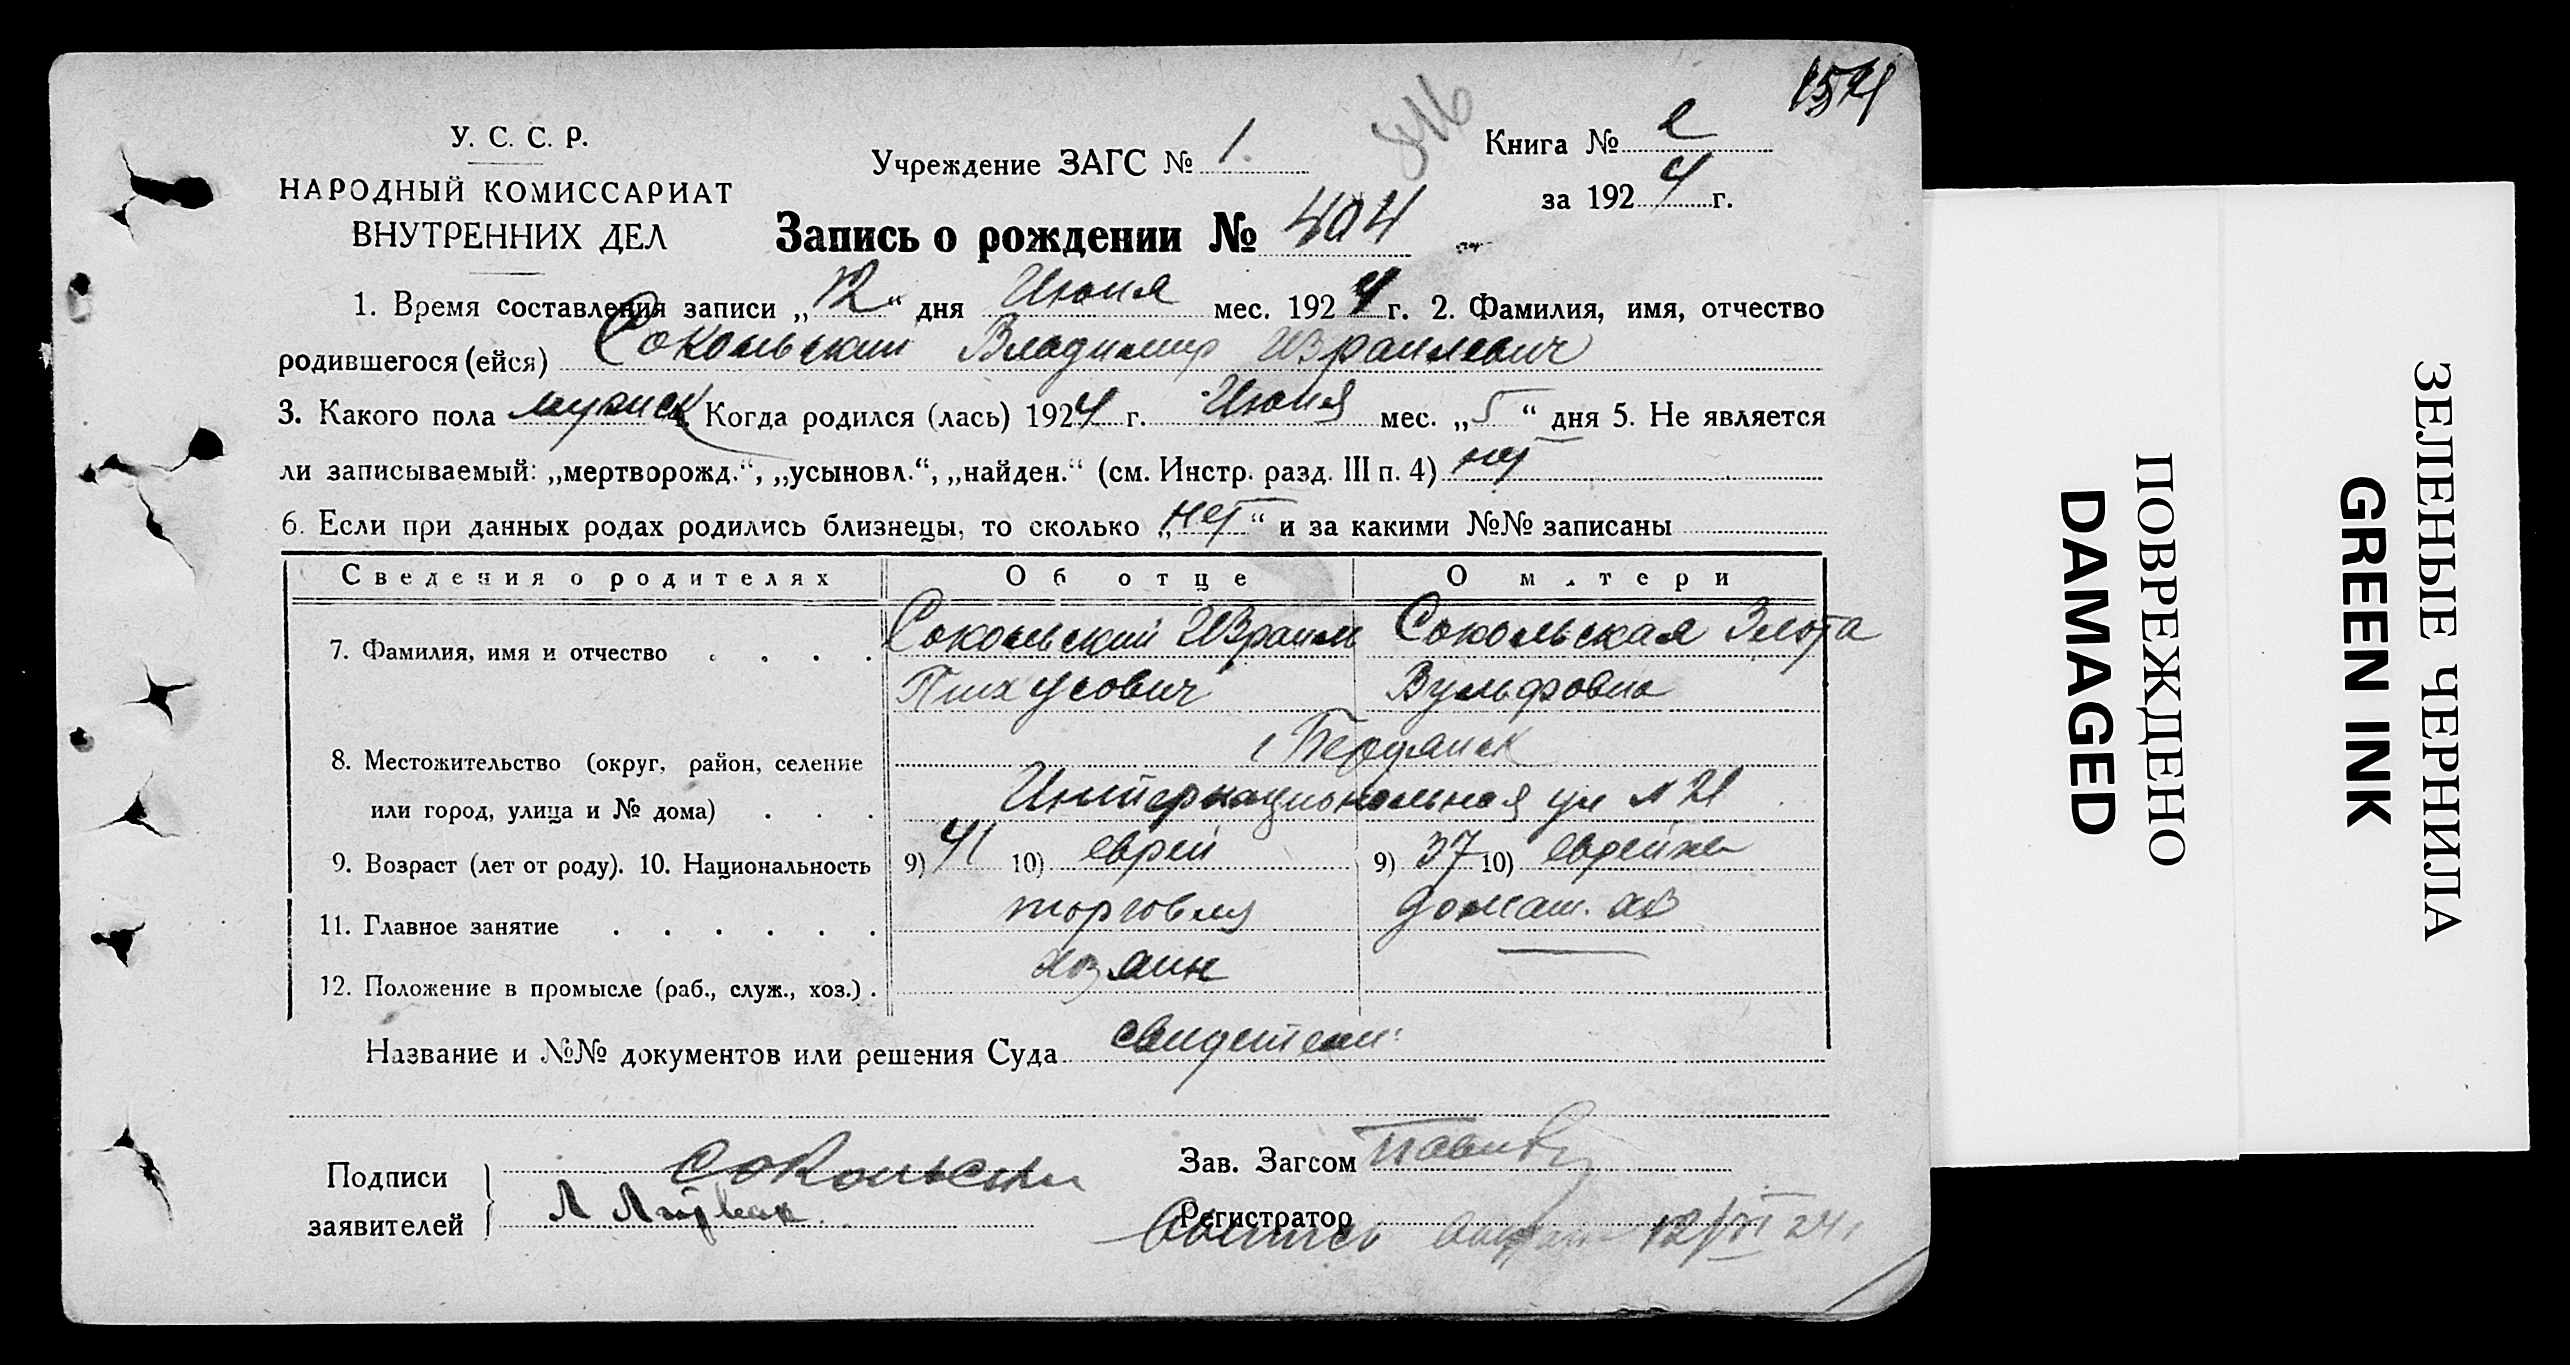 1524
816
У. С. С. Р.
НАРОДНЫЙ КОМИССАРИАТ
ВНУТРЕННИХ ДЕЛ
Учреждение ЗАГС № 1.
Книга № 2
за 1924 г.
Запись о рождении № 404
1. Время составления записи „12“ дня Июня мес. 1924 г. 2. Фамилия, имя, отчество
родившегося (ейся) Сокольский Владимир Израилевич
3. Какого пола мужск. Когда родился (лась) 1924 г. Июня мес. „5“ дня 5. Не является
ли записываемый: „мертворожд.“, „усыновл.“, „найден.“ (см. Инстр. разд. III п. 4) нет
6. Если при данных родах родились близнецы, то сколько „нет“ и за какими №№ записаны
Сведения о родителях Об отце О матери
7. Фамилия, имя и отчество . . . . Сокольский Израиль Сокольская Злота
Пинхусович Вульфовна
г Бердянск
8. Местожительство (округ, район, селение
или город, улица и № дома) . . . Интернациональная ул № 21
9. Возраст (лет от роду). 10. Национальность 9) 41 10) еврей 9) 37 10) еврейка
11. Главное занятие . . . . . . торговля домаш. хоз
12. Положение в промысле (раб., служ., хоз.) . хозяин —
Название и №№ документов или решения Суда свидетели
Подписи
заявителей
Сокольский
Зав. Загсом
Регистратор
12/VI 24 г
ПОВРЕЖДЕНО
DAMAGED
ЗЕЛЕНЫЕ ЧЕРНИЛА
GREEN INK